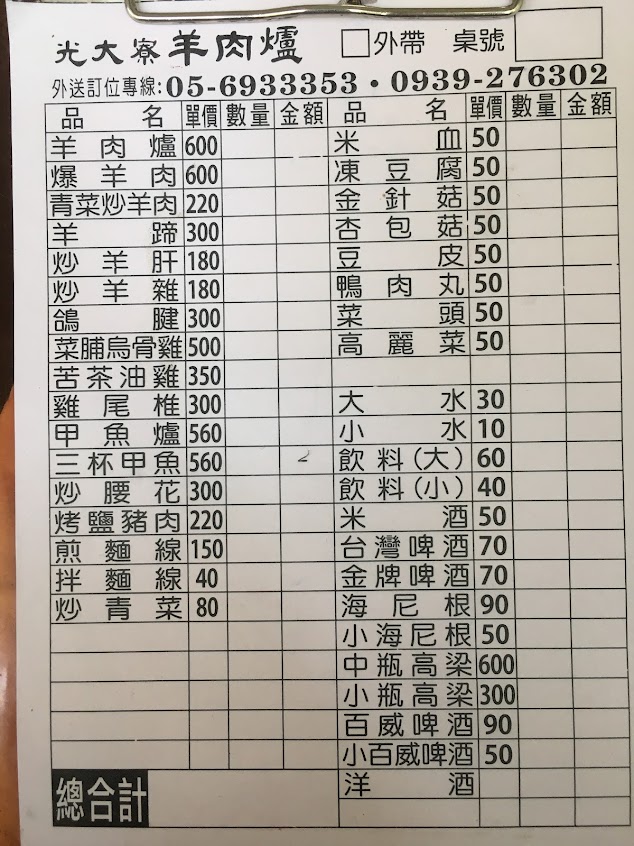 光大寮羊肉爐 外帶 桌號
外送訂位專線:05-6933353・0939-276302
品名 單價 數量 金額 品名 單價 數量 金額
羊肉爐 600 米血 50
爆羊肉 600 凍豆腐 50
青菜炒羊肉 220 金針菇 50
羊蹄 300 杏包菇 50
炒羊肝 180 豆皮 50
炒羊雜 180 鴨肉丸 50
鴿腱 300 菜頭 50
菜脯烏骨雞 500 高麗菜 50
苦茶油雞 350
雞尾椎 300 大水 30
甲魚爐 560 小水 10
三杯甲魚 560 飲料(大) 60
炒腰花 300 飲料(小) 40
烤鹽豬肉 220 米酒 50
煎麵線 150 台灣啤酒 70
拌麵線 40 金牌啤酒 70
炒青菜 80 海尼根 90
小海尼根 50
中瓶高梁 600
小瓶高梁 300
百威啤酒 90
小百威啤酒 50
總合計 洋酒